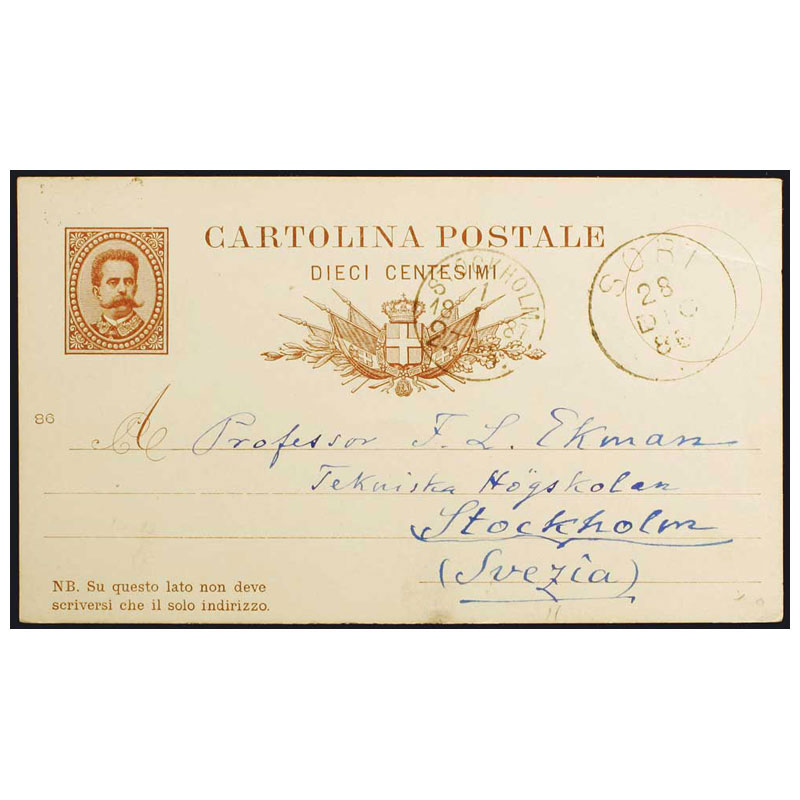 CARTOLINA POSTALE
DIECI CENTESIMI
STOCKHOLM
1
18 87
2
SORI
28
DIC
86
86
A Professor F. L. Ekman
Tekniska Högskolan
Stockholm
(Svezia)
NB. Su questo lato non deve
scriversi che il solo indirizzo.